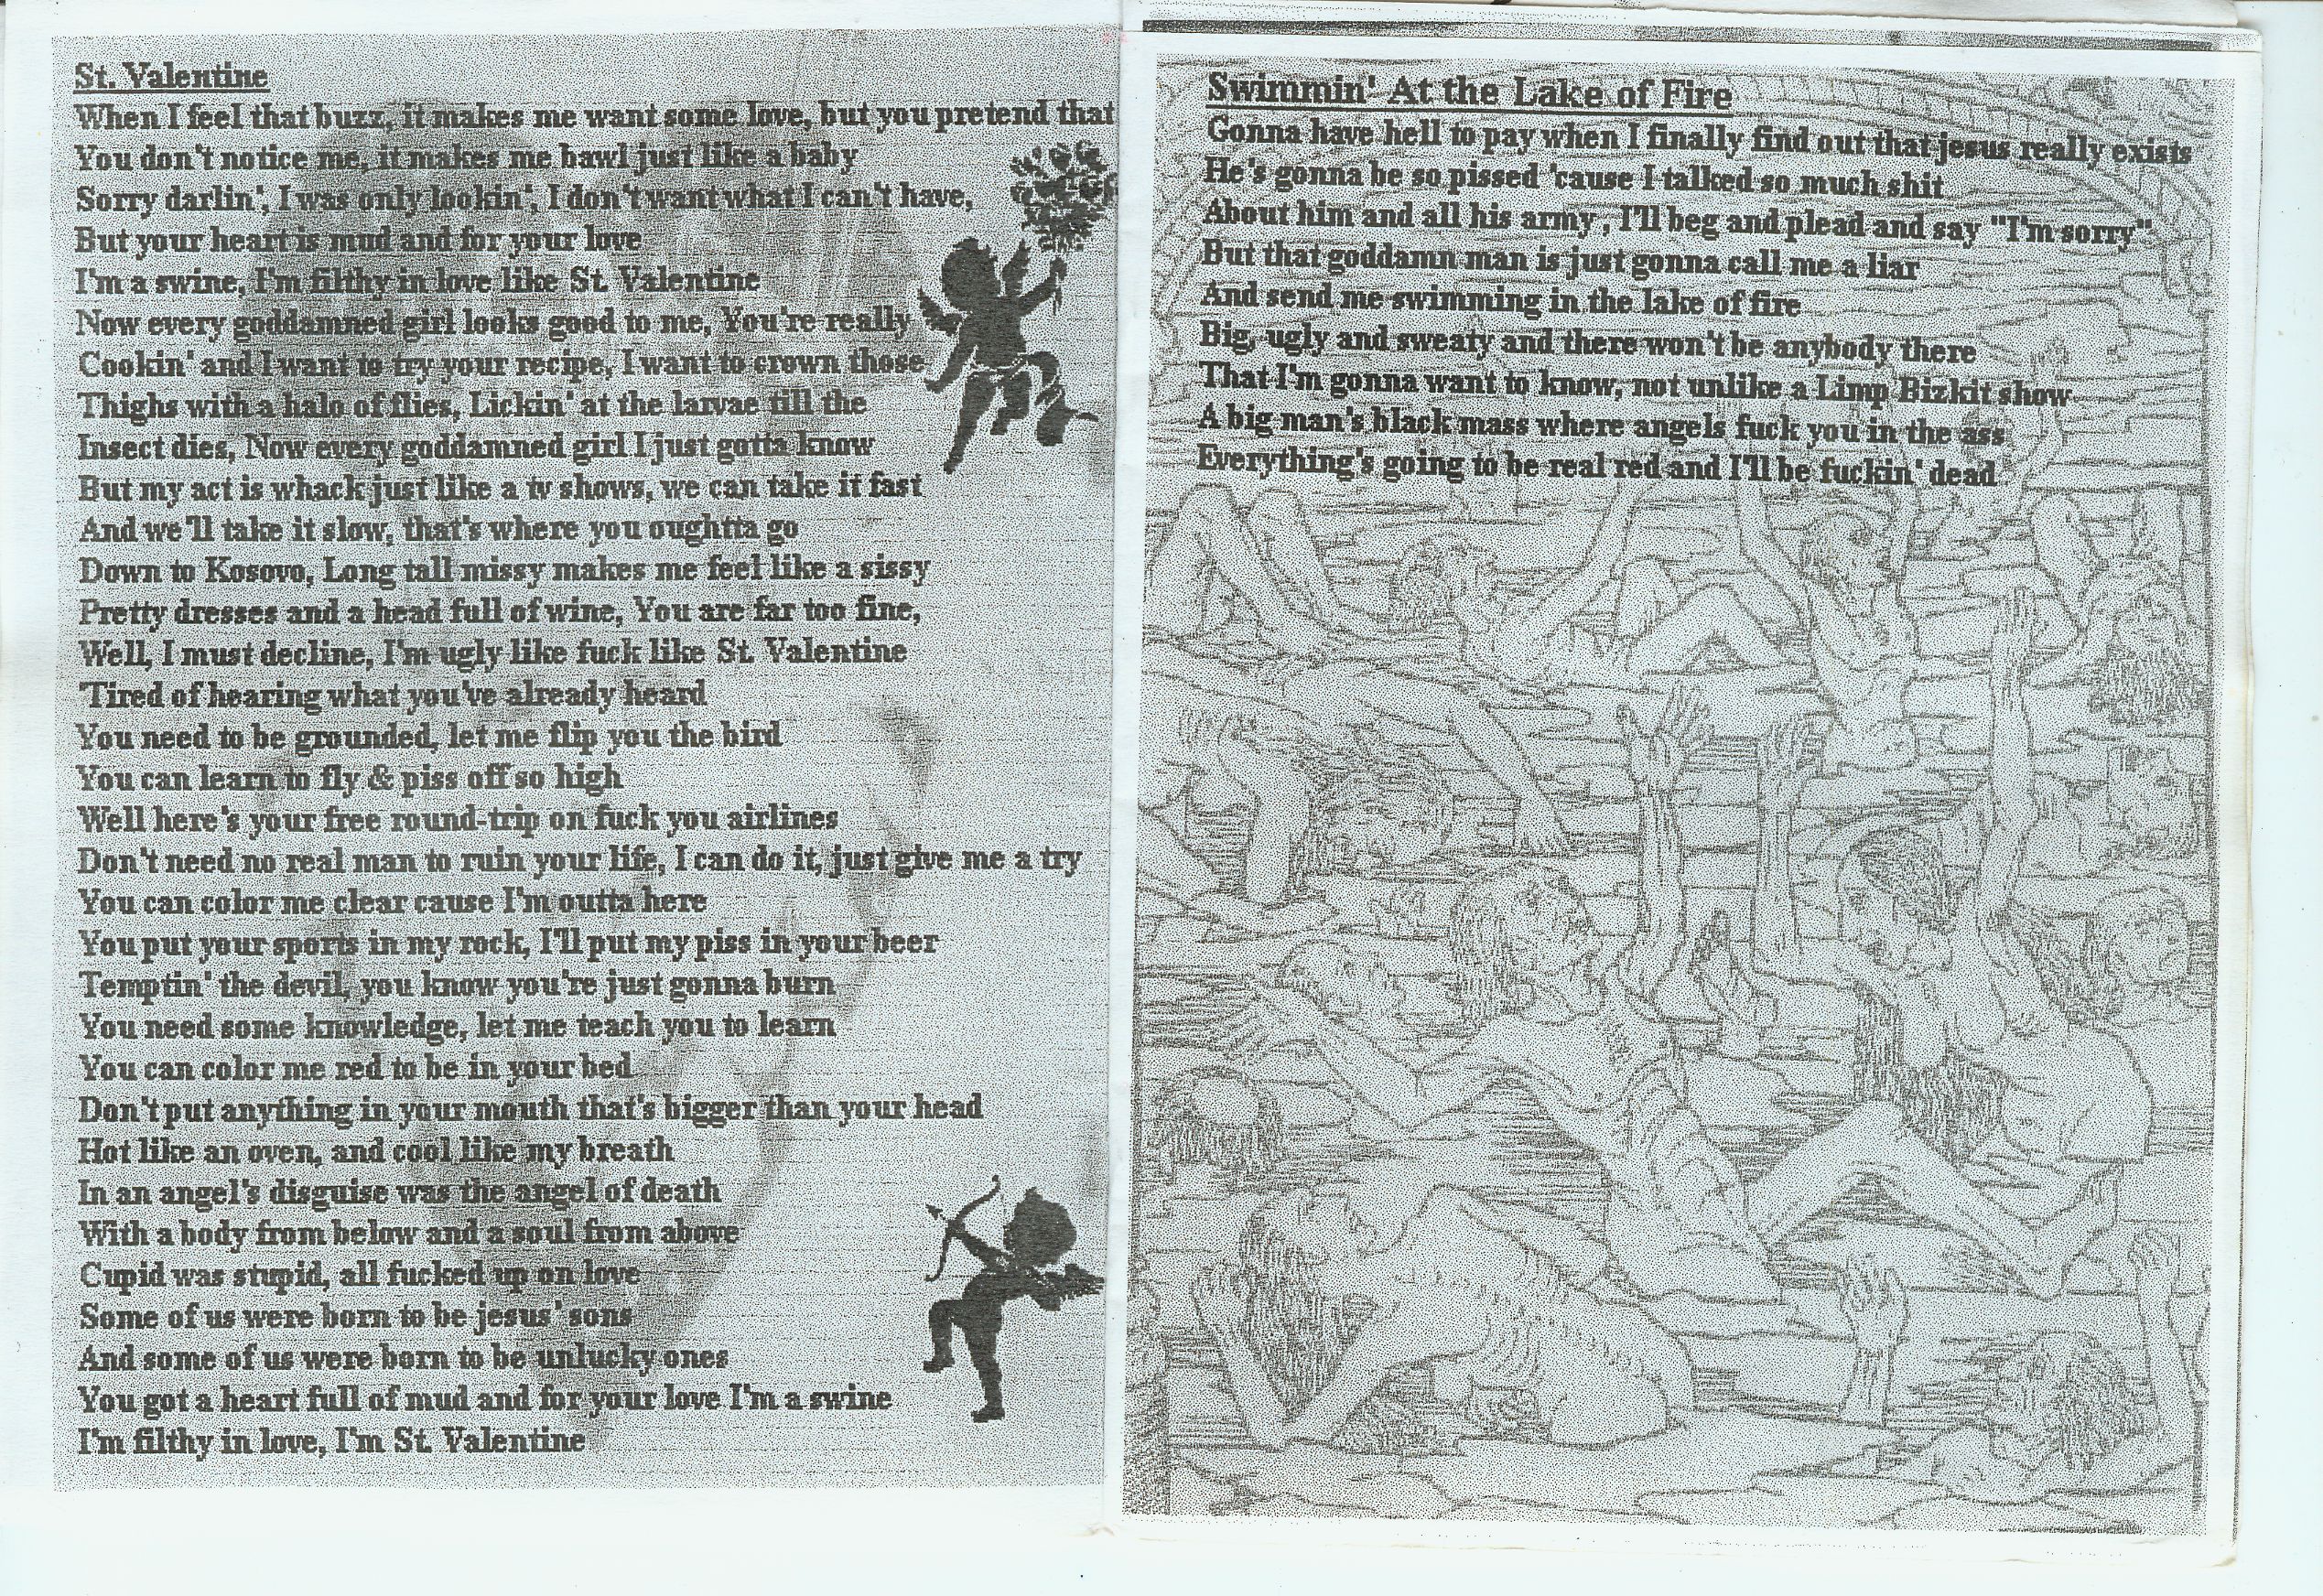 St. Valentine
When I feel that buzz, it makes me want some love, but you pretend that
You don't notice me, it makes me bawl just like a baby
Sorry darlin', I was only lookin', I don't want what I can't have,
But your heart is mud and for your love
I'm a swine, I'm filthy in love like St. Valentine
Now every goddamned girl looks good to me, You're really
Cookin' and I want to try your recipe, I want to crown those
Thighs with a halo of flies, Lickin' at the larvae till the
Insect dies, Now every goddamned girl I just gotta know
But my act is whack just like a tv shows, we can take it fast
And we'll take it slow, that's where you oughtta go
Down to Kosovo, Long tall missy makes me feel like a sissy
Pretty dresses and a head full of wine, You are far too fine,
Well, I must decline, I'm ugly like fuck like St. Valentine
'Tired of hearing what you've already heard
You need to be grounded, let me flip you the bird
You can learn to fly & piss off so high
Well here's your free round-trip on fuck you airlines
Don't need no real man to ruin your life, I can do it, just give me a try
You can color me clear cause I'm outta here
You put your sports in my rock, I'll put my piss in your beer
Temptin' the devil, you know you're just gonna burn
You need some knowledge, let me teach you to learn
You can color me red to be in your bed
Don't put anything in your mouth that's bigger than your head
Hot like an oven, and cool like my breath
In an angel's disguise was the angel of death
With a body from below and a soul from above
Cupid was stupid, all fucked up on love
Some of us were born to be jesus' sons
And some of us were born to be unlucky ones
You got a heart full of mud and for your love I'm a swine
I'm filthy in love, I'm St. Valentine
Swimmin' At the Lake of Fire
Gonna have hell to pay when I finally find out that jesus really exists
He's gonna be so pissed 'cause I talked so much shit
About him and all his army, I'll beg and plead and say "I'm sorry"
But that goddamn man is just gonna call me a liar
And send me swimming in the lake of fire
Big, ugly and sweaty and there won't be anybody there
That I'm gonna want to know, not unlike a Limp Bizkit show
A big man's black mass where angels fuck you in the ass
Everything's going to be real red and I'll be fuckin' dead